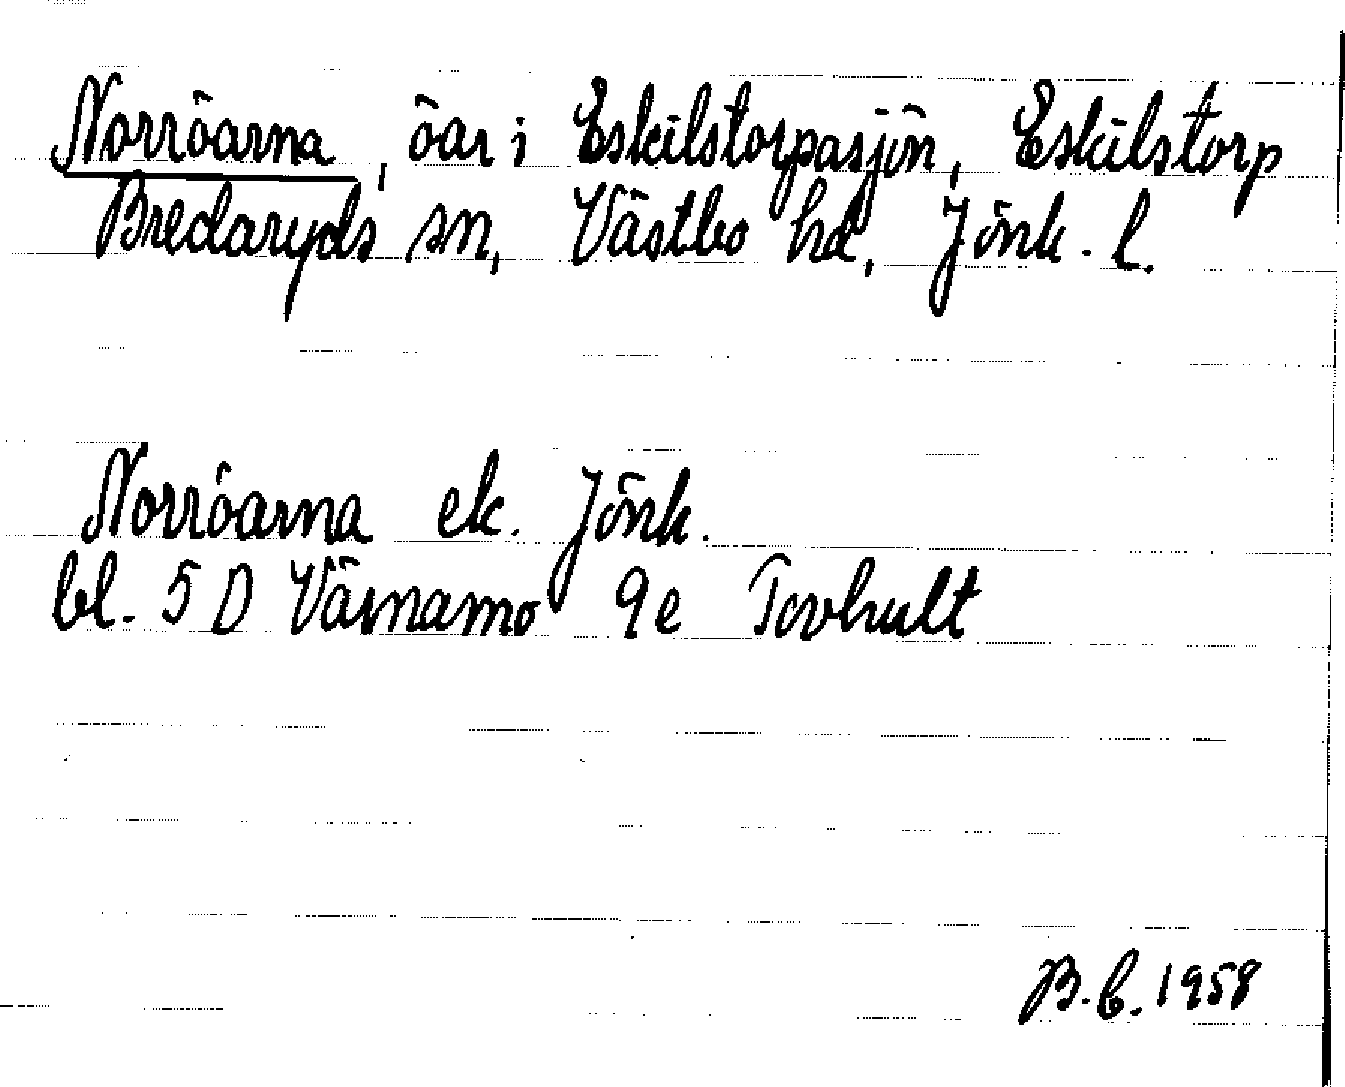 Norröarna, öar i Eskilstorpasjön, Eskilstorp
Bredaryds sn, Västbo hd, Jönk. l.
Norröarna ek. Jönk.
bl. 5 D Värnamo 9e Tovhult
B.E. 1958